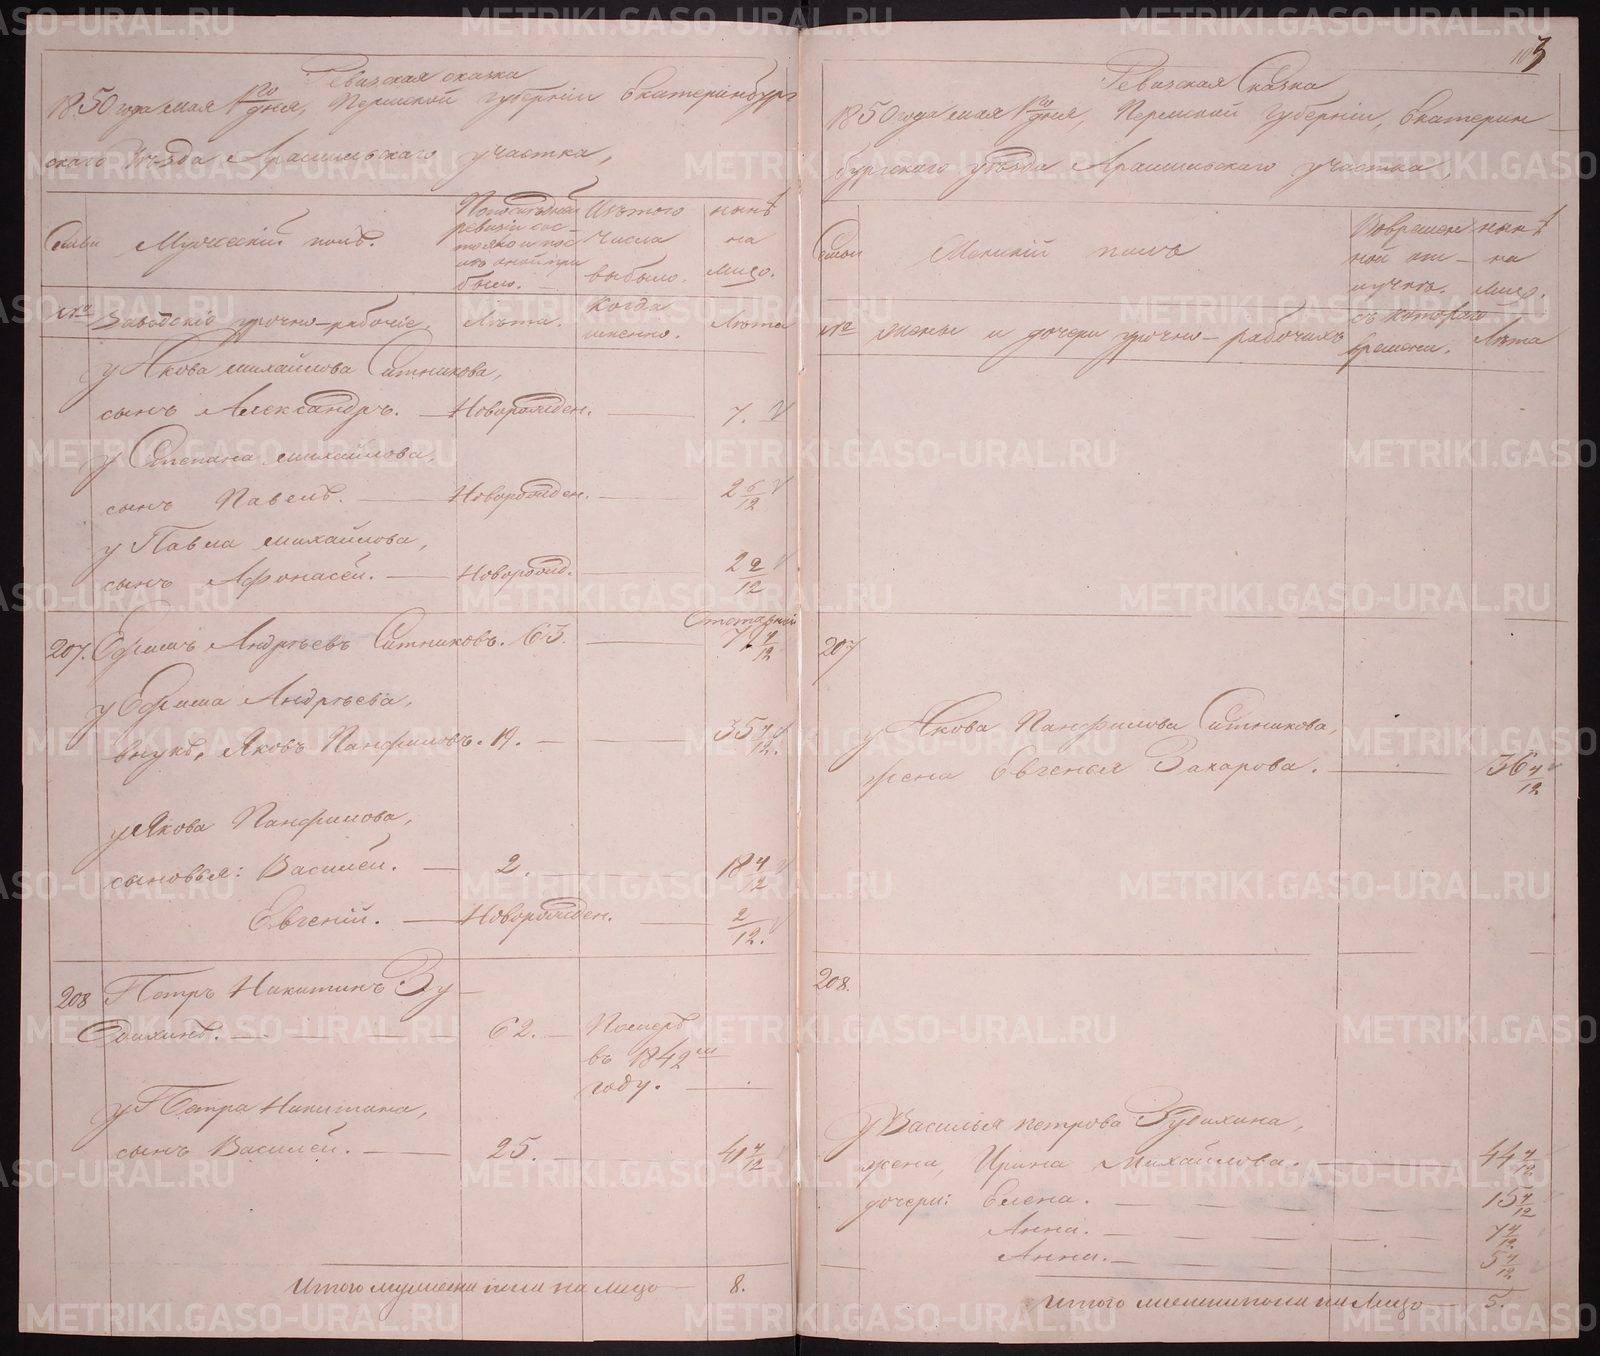 Ревизская сказка
1850 года мая 1го дня, Пермской губернiи Екатеринбург
скаго уѣзда Арамильскаго участка,
Семьи
Мужескiй полъ.
По послѣдней
ревизiи сос-
тояло и пос-
лѣ оной при
было.
Изъ того
числа
выбыло.
нынѣ
на
лицо.
№
Заводскiе урочно-рабочiе.
Лѣта.
Когда
именно.
Лѣта
у Якова Михайлова Ситникова,
сынъ Александръ. — Новорожден. — 7.
у Степана Михайлова,
сынъ Павелъ. — Новорожден. — 2 6/12
у Павла Михайлова,
сынъ Афонасей. — Новорожд. — 2 2/12
207. Ефимъ Андрѣевъ Ситниковъ. 63. —
у Ефима Андрѣева,
внукъ, Яковъ Панфиловъ. 19. — 35 4/12.
у Якова Панфилова,
сыновья: Василей. — 2. — 18 4/12
Евгенiй. — Новорожден. — 2/12.
208 Петръ Никитинъ Зу-
бихинъ. — 62. — Померъ
въ 1842м
году. —
у Петра Никитина,
сынъ Василей. — 25. — 41 4/12
Итого мужеска пола на лицо 8.
103
Ревизская Сказка
1850 года мая 1го дня, Пермской губернiи, Екатерин-
бургскаго уѣзда Арамильскаго участка,
Семьи
Женскiй полъ
Во времен
ной от-
лучкѣ.
нынѣ
на
лицо.
№ жены и дочери урочно-рабочихъ
съ котораго
времени.
Лѣта
207
у Якова Панфилова Ситникова,
жена Евгенья Захарова. — 36 4/12
208.
у Василья Петрова Зубихина,
жена, Ирина Михайлова. — 44 4/12
дочери: Елена. — 15 4/12
Анна. — 7 4/12.
Анна. — 5 4/12
Итого женска пола на лицо 5.
METRIKI.GASO-URAL.RU